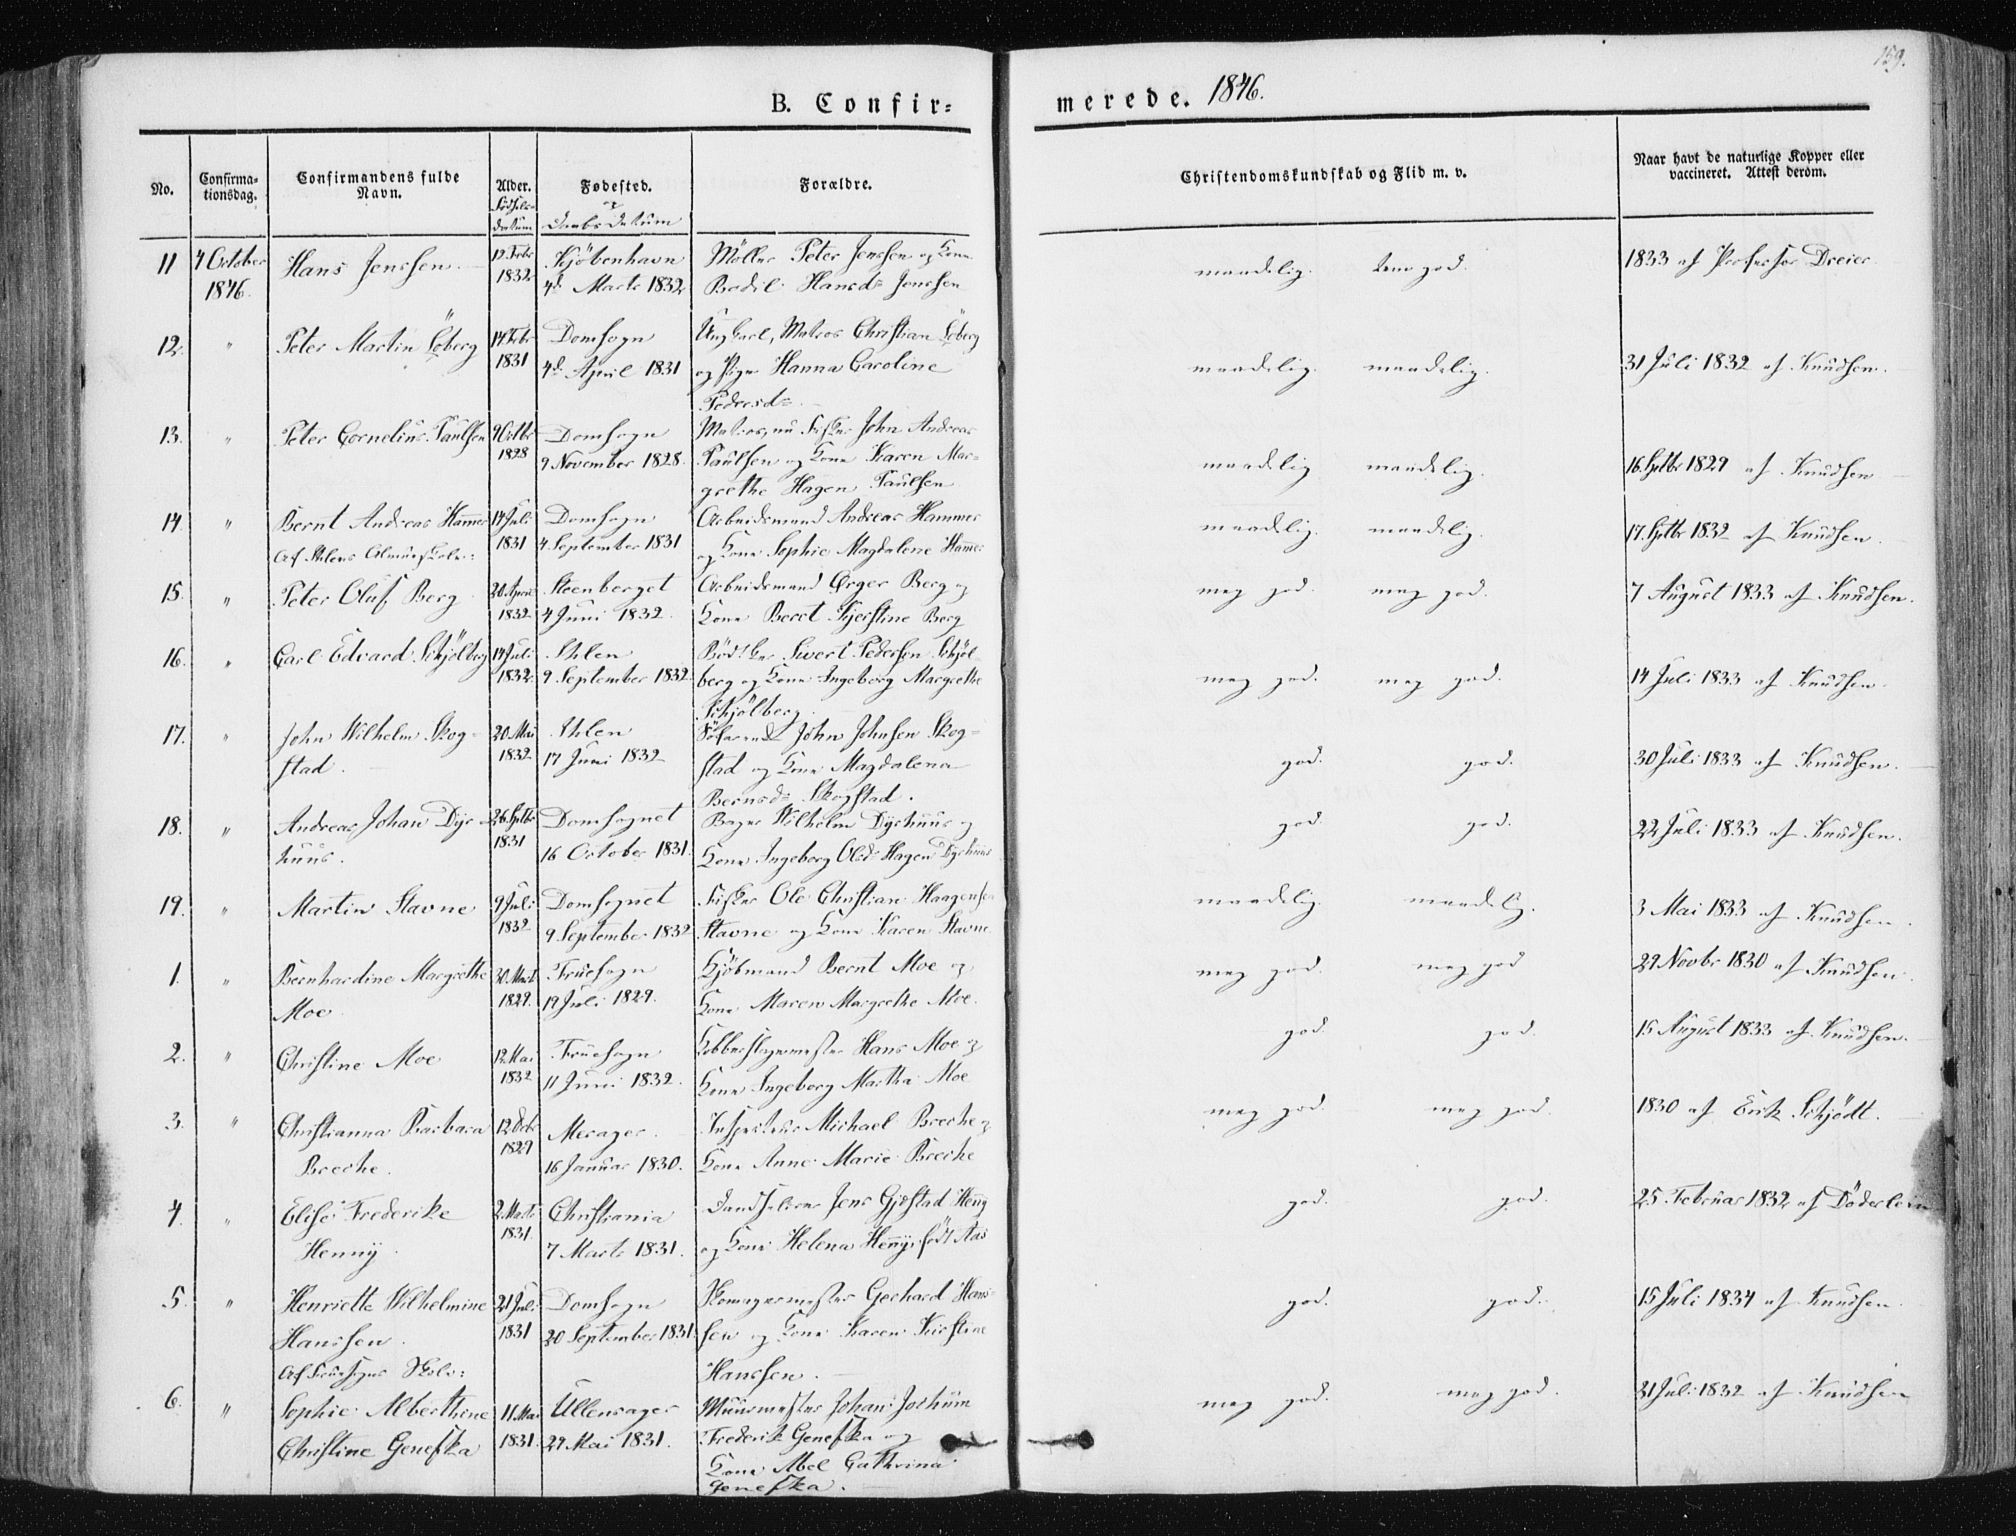 159.
B. Confir=
merede. 1846.
No.
Confirma-
tionsdag.
Confirmandens fulde
Navn.
Alder.
Födsels-
datum
Fødested.
og
Daabsdatum
Forældre.
Christendomskundskab og Flid m. v.
Naar havt de naturlige Kopper eller
vaccineret. Attest derom.
11 4 October 1846. Hans Jenssen 12 Febr 1832 Kjöbenhavn 4de Marts 1832
Möller Peter Jenssen og Kone
Bodil Hansd= Jenssen
maadelig. god. 1833 af Professor Dreier
12. " Peter Martin Löberg 14 Febr 1831 Domsogn 4de April 1831
Ungkarl, Matros Christian Löberg
og Pige Hanna Caroline
Pedersd=
maadelig. maadelig. 31 Juli 1832 af Knudsen.
13. " Peter Cornelius Paulsen 9 Octbr 1828 Domsogn 9 November 1828.
Matros, nu Fisker John Andreas
Paulsen og Kone Karen Mar=
grethe Hagen Paulsen
maadelig maadelig. 16. Septbr 1829 af Knudsen
14. " Bernt Andreas Hammer 14 Juli 1831 Domsogn 4. September 1831
Af Ihlens Almueskole:
Arbeidsmand Andreas Hammer
og Kone Sophie Magdalene Hammer
maadelig. maadelig. 17. Septbr 1832 af Knudsen.
15. " Peter Oluf Berg 20 April 1832 Steenberget 4 Juni 1832.
Arbeidsmand Ørger Berg og
Kone Beret Kjerstine Berg
meg god. meg god. 7 August 1833 af Knudsen.
16. " Carl Edvard Schjölberg 14 Juli 1832. Ihlen 9 September 1832
Bödtker Sivert Pedersen Schjöl-
berg og Kone Ingeborg Margrethe
Schjölberg
meg god. meg god. 14 Juli 1833 af Knudsen.
17. " John Wilhelm Skog-
stad. 20 Mai 1832 Ihlen 17 Juni 1832
Söfarende John Johnsen Skog=
stad og Kone Magdalena
Bernsd= Skogstad.
god. god. 30 Juli 1833 af Knudsen.
18. " Andreas Johan Dys-
huus. 26. Septbr 1831 Domsognet 16 October 1831.
Bager Wilhelm Dyshuus og
Kone Ingeborg Olsd= Hagen Dyshuus
god god. 22 Juli 1833 af Knudsen.
19. " Martin Stavne 9 Juli 1832 Domsognet 9 September 1832
Fisker Ole Christian Haagensen
Stavne og Kone Karen Stavne
maadelig. maadelig. 3 Mai 1833 af Knudsen.
1. " Bernhardine Margrethe
Moe 30. Marts 1829. Fruesogn 19 Juli 1829.
Kjöbmand Bernt Moe og
Kone Maren Margrethe Moe.
meg god. meg god 29 Novbr 1830 af Knudsen.
2. " Christine Moe 12 Mai 1832 Fruesogn 11 Juni 1832.
Kobberslagermester Hans Moe og
Kone Ingeborg Martha Moe
god. god. 15 August 1833 af Knudsen.
3. " Christianna Barbara
Breche. 12 1829 Merager. 16 Januar 1830.
Inspecteur Michael Breche og
Kone Anne Marie Breche
meg god. meg god. 1830 af Erik Schjödt.
4. " Elise Frederike
Henny. 2. Marts 1831. Christiania 7 Marts 1831.
Jens Gjestad Henny
og Kone Helena Henny, född Aas
god. god. 25 Februar 1832 af Döderlein
5. " Henriette Wilhelmine
Hanssen. 21 Juli 1831 Domsogn 20 September 1831
Af Fruesogns Skole:
Skomagermester Gerhard Hans-
sen og Kone Karen Kirstine
Hanssen.
god. god. 15 Juli 1834 af Knudsen.
6. " Sophie Alberthine
Christine Genefka 11 Mai 1831. Ullensager 29 Mai 1831.
Muurmester Johan Jochum
Frederik Genefka og
Kone Abel Cathrina
Genefka.
meg god. meg god. 21 Juli 1832 af Knudsen